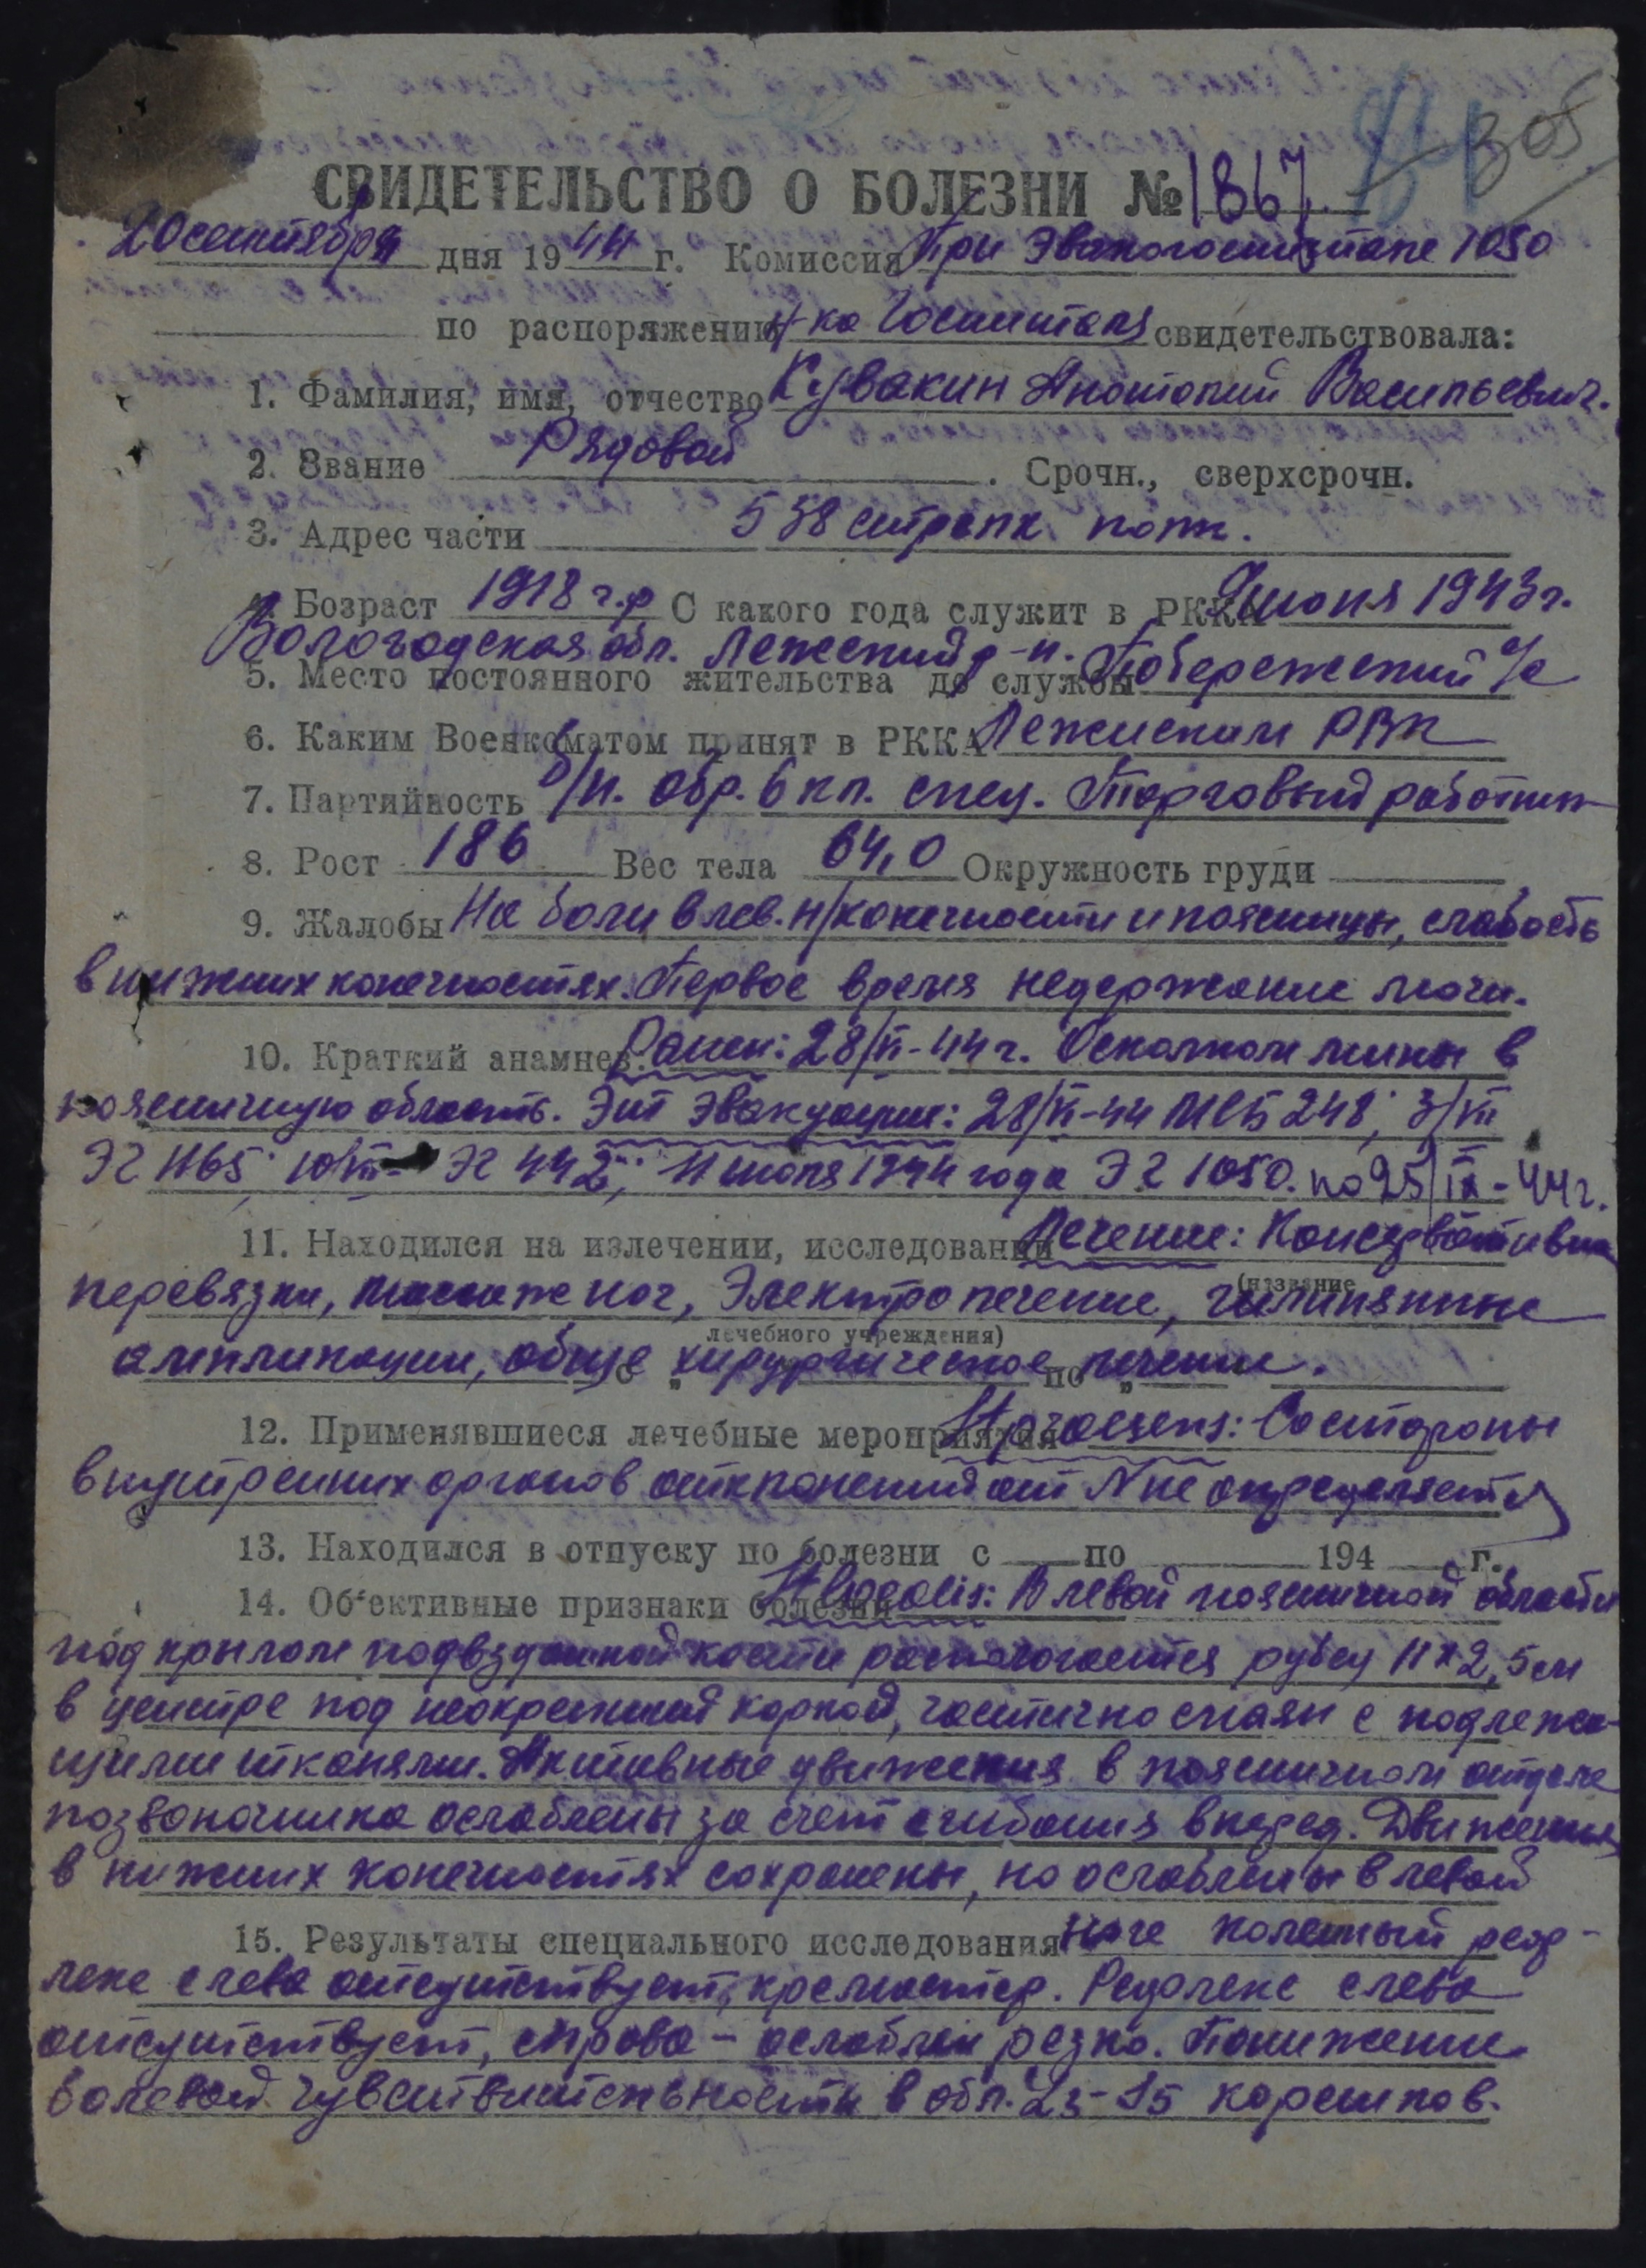 305
СВИДЕТЕЛЬСТВО О БОЛЕЗНИ № 1867
20 сентября дня 1944 г. Комиссия При Эвакогоспитале 1050
по распоряжению Н-ка Госпиталя свидетельствовала:
1. Фамилия, имя, отчество Кувакин Анатолий Васильевич.
2. Звание Рядовой. Срочн., сверхсрочн.
3. Адрес части 538 стрелк. полк.
4. Возраст 1918 г.р С какого года служит в РККА июня 1943 г.
Вологодская обл. Лежский р-н. Побережский с/с
5. Место постоянного жительства до службы
6. Каким Военкоматом принят в РККА Лежским РВК
7. Партийность б/п. Обр. 6 кл. спец. Торговый работник
8. Рост 186 Вес тела 64,0 Окружность груди
9. Жалобы На боли в лев. н/конечности и поясницы, слабость
в нижних конечностях. Первое время недержание мочи.
10. Краткий анамнез. Ранен: 28/VI-44 г. Осколком мины в
поясничную область. Эт Эвакуации: 28/VI-44 МСБ 248; 3/VII
ЭГ 1165; 10/VII- ЭГ 442; 11 июля 1944 года ЭГ 1050. по 25/IX-44 г.
11. Находился на излечении, исследовании Лечение: Консервативн
(название
перевязки, массаж ног, Электролечение, глиняные
лечебного учреждения)
аппликации, обще хирургическое лечение.
с „ по „
12. Применявшиеся лечебные мероприятия St. praesens: Со стороны
внутренних органов отклонений от N не определяется
13. Находился в отпуску по болезни с по 194 г.
14. Об‘ективные признаки болезни St. localis: В левой поясничной области
под крылом подвздошной кости располагается рубец 11х2,5 см
в центре под неокрепшей коркой, частично спаян с подлежа-
щими тканями. Активные движения в поясничном отделе
позвоночника ослаблены за счет сгибания вперед. Движения
в нижних конечностях сохранены, но ослаблены в левой
15. Результаты специального исследования ноге коленный реф-
лекс слева отсутствует, кремастер. Рефлекс слева
отсутствует, справа - ослаблен резко. Понижение
болевой чувствительности в обл. L3-S5 корешков.